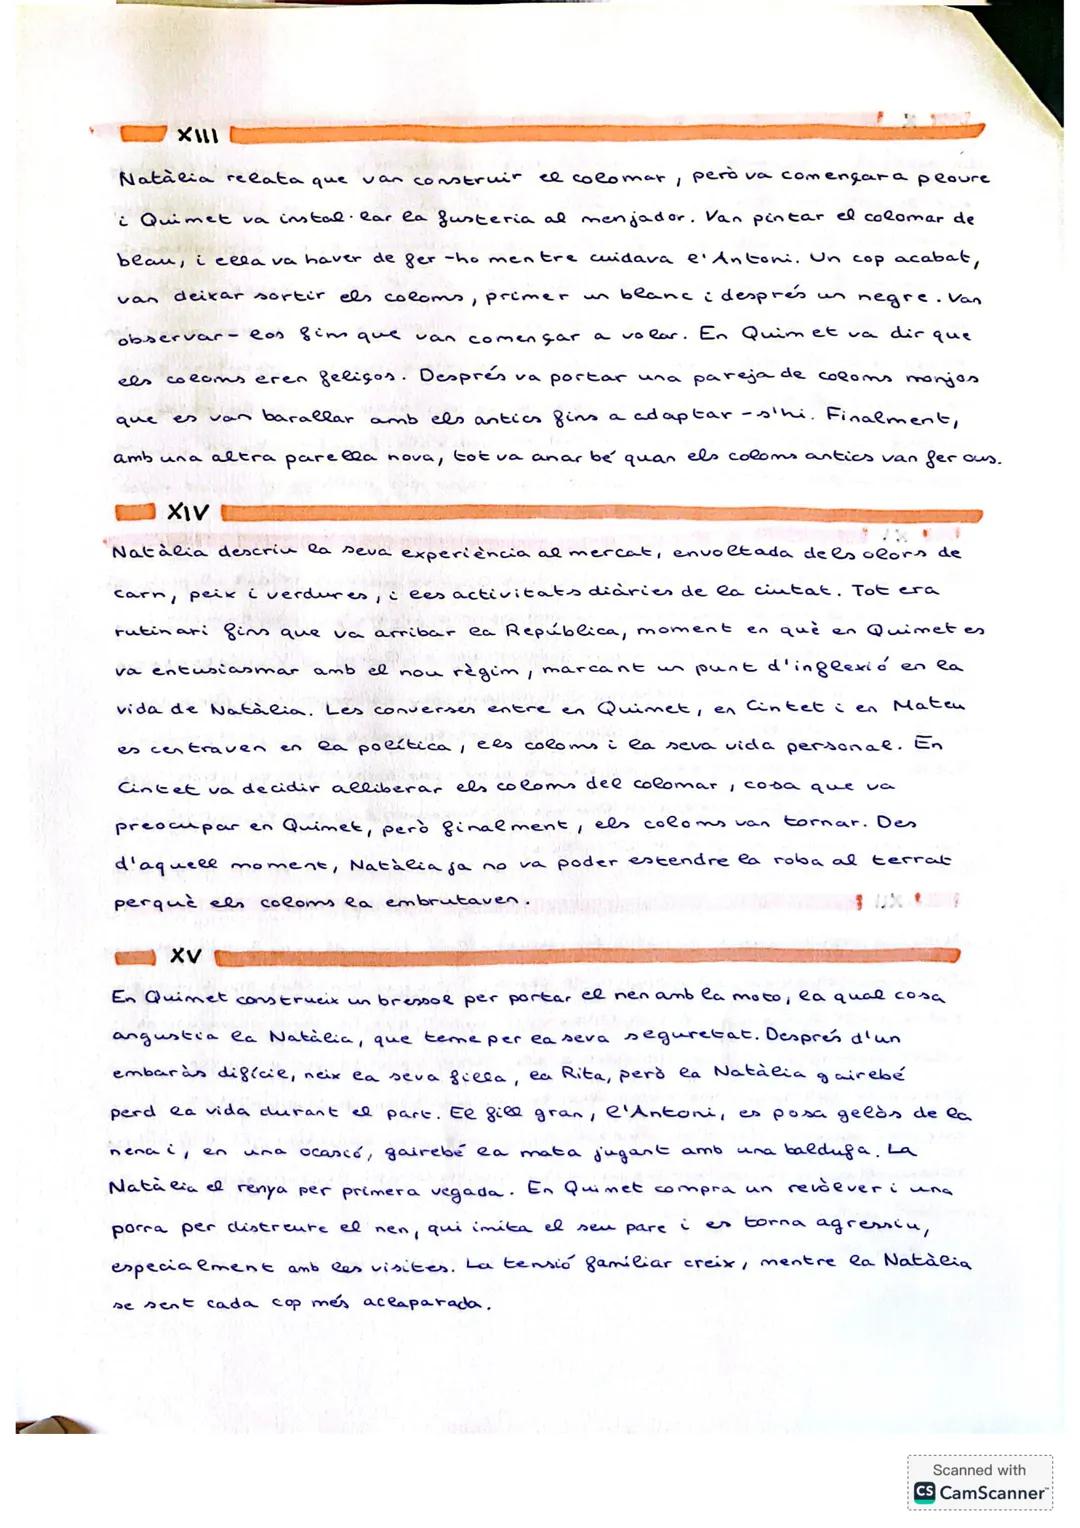 XIII
Natàlia relata que van construir el colomar, però va començar a ploure
i Quimet va instal·lar la fusteria al menjador. Van pintar el colomar de
blau, i ella va haver de fer-ho mentre cuidava l'Antoni. Un cop acabat,
van deixar sortir els coloms, primer un blanc i després un negre. Van
observar-los fins que van començar a volar. En Quimet va dir que
els coloms eren feliços. Després va portar una pareja de coloms monjos
que es van barallar amb els antics fins a adaptar-s'hi. Finalment,
amb una altra parella nova, tot va anar bé quan els coloms antics van fer ous.
XIV
Natàlia descriu la seva experiència al mercat, envoltada dels olors de
carn, peix i verdures, i les activitats diàries de la ciutat. Tot era
rutinari fins que va arribar la República, moment en què en Quimet es
va entusiasmar amb el nou règim, marcant un punt d'inflexió en la
vida de Natàlia. Les converses entre en Quimet, en Cintet i en Mateu
es centraven en la política, els coloms i la seva vida personal. En
Cintet va decidir alliberar els coloms del colomar, cosa que va
preocupar en Quimet, però finalment, els coloms van tornar. Des
d'aquell moment, Natàlia ja no va poder estendre la roba al terrat
perquè els coloms la embrutaven.
XV
En Quimet construeix un bressol per portar el nen amb la moto, la qual cosa
angustia la Natàlia, que teme per la seva seguretat. Després d'un
embaràs difícil, neix la seva filla, la Rita, però la Natàlia gairebé
perd la vida durant el part. El fill gran, l'Antoni, es posa gelòs de la
nena i, en una ocasió, gairebé la mata jugant amb una baldufa. La
Natàlia el renya per primera vegada. En Quimet compra un revòlver i una
porra per distreure el nen, qui imita el seu pare i es torna agressiu,
especialment amb les visites. La tensió familiar creix, mentre la Natàlia
se sent cada cop més aclaparada.
Scanned with
CS CamScanner